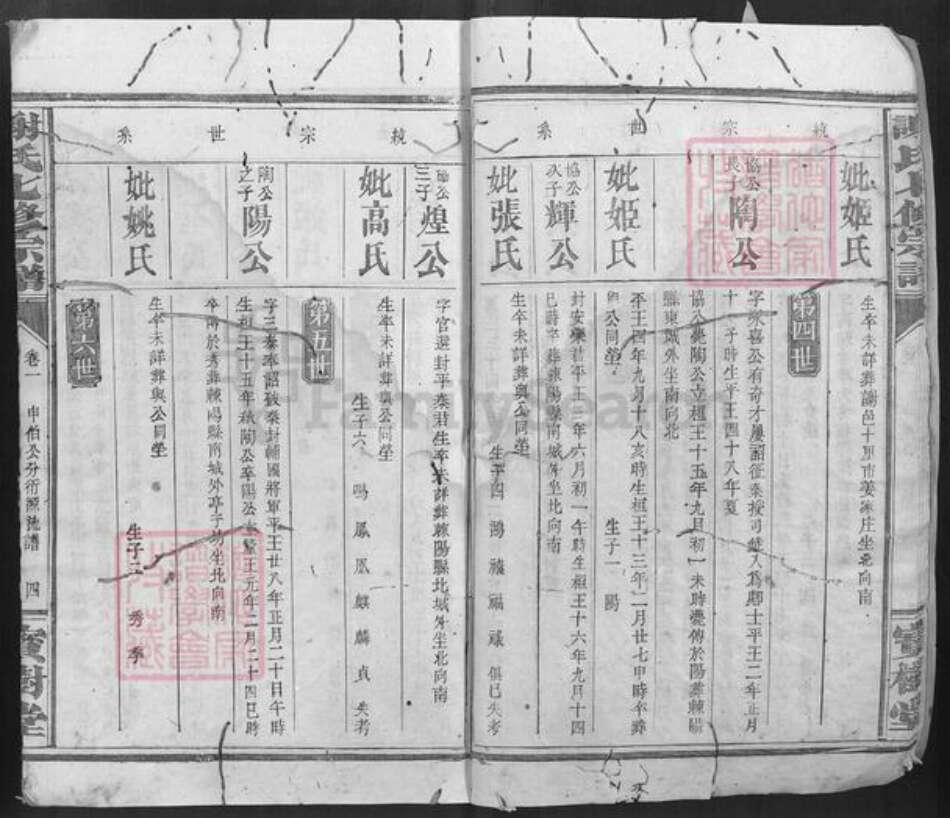 統宗世系
妣姬氏
生卒未詳葬謝邑十里市姜家庄坐北向南
第四世
協公長子陶公
字永喜公有奇才屢詔征秦授司徒入爲卿士平王二年正月
十一子時生平王四十八年夏
協公薨陶公立桓王十五年九月初一未時薨傳於陽葬棘陽
縣東城外坐南向北
妣姬氏
平王四年九月十八亥時生桓王十三年二月廿七甲時卒葬
與公同塋
生子一 陽
協公次子輝公
封安樂君平王三年六月初一午時生桓王十六年九月十四
巳時卒葬棘陽縣南城外坐北向南
妣張氏
生卒未詳葬與公同塋
生子四 鴻 福 祿 俱已失考
統宗世系
協公三子煌公
字官選封平樂君生卒未詳葬棘陽縣北城外坐北向南
妣高氏
生卒未詳葬與公同塋
生子六 鳴 鳳 凰 麒 麟 貞 失考
第五世
陶公之子陽公
字三泰奉詔破秦封輔國將軍平王廿八年正月二十日午時
生桓王十五年秋陶公卒陽公立釐王元年二月二十四巳時
卒傳於秀葬棘陽縣南城外亭子坊坐北向南
妣姚氏
生卒未詳葬與公同塋
生子二 秀 季
第六世
謝氏七修宗譜
卷一
申伯公分衍源流譜
四
寶樹堂
謝氏七修宗譜
寶樹堂
FamilySearch